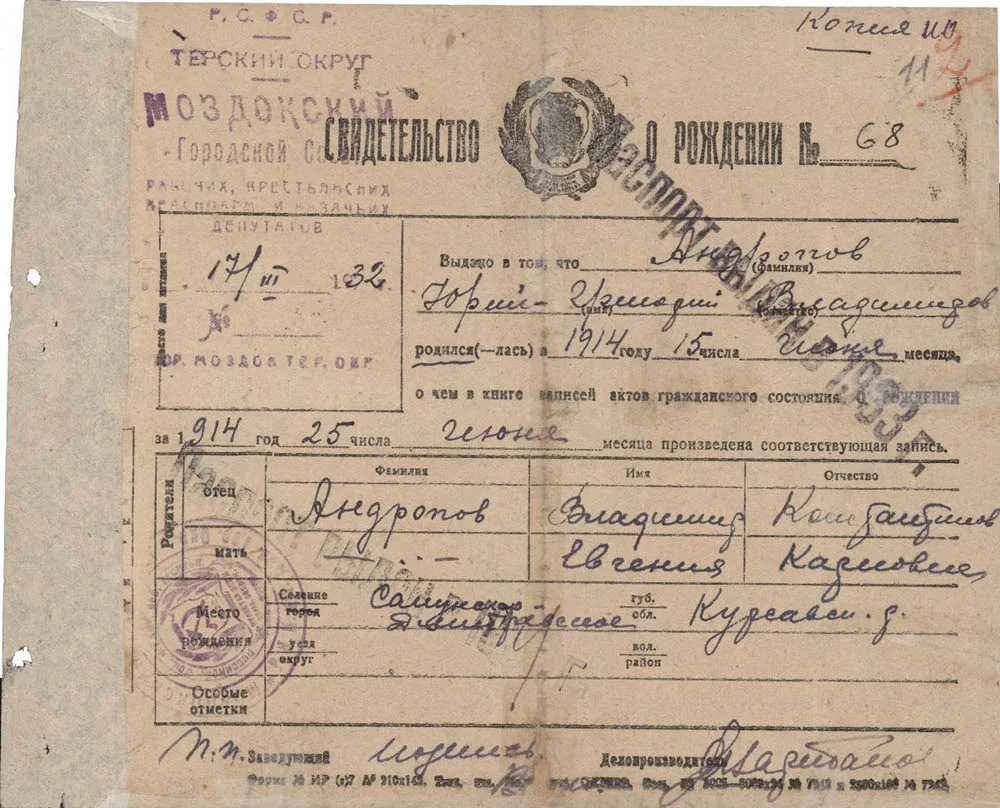 Р. С. Ф. С. Р.
Копия
ТЕРСКИЙ ОКРУГ
11 2
МОЗДОКСКИЙ
СВИДЕТЕЛЬСТВО О РОЖДЕНИИ № 68
Городской Совет
РАБОЧИХ, КРЕСТЬЯНСКИХ
КРАСНОАРМ И КАЗАЧЬИХ
ДЕПУТАТОВ
Место для штампа
17/III 1932
№
ГОР. МОЗДОК ТЕР. ОКР
Паспорт выдан в 1933 г.
Выдано в том, что Андропов
(фамилия)
Юрий- Владимиров
(имя) (отчество)
родился(—лась) в 1914 году 15 числа июня месяца,
о чем в книге записей актов гражданского состояния о рождении
за 1914 год 25 числа июня месяца произведена соответствующая запись.
Родители
Фамилия Имя Отчество
отец Андропов Владимир Константинов
мать —"— Евгения Карловна
Паспорт выдан
Место рождения
Селение город губ. обл. Курсавск. р.
уезд округ вол. район
Особые отметки
п.п. Заведующий подпись Делопроизводитель
Форма № ИР (з)7 А⁵ 210х148.